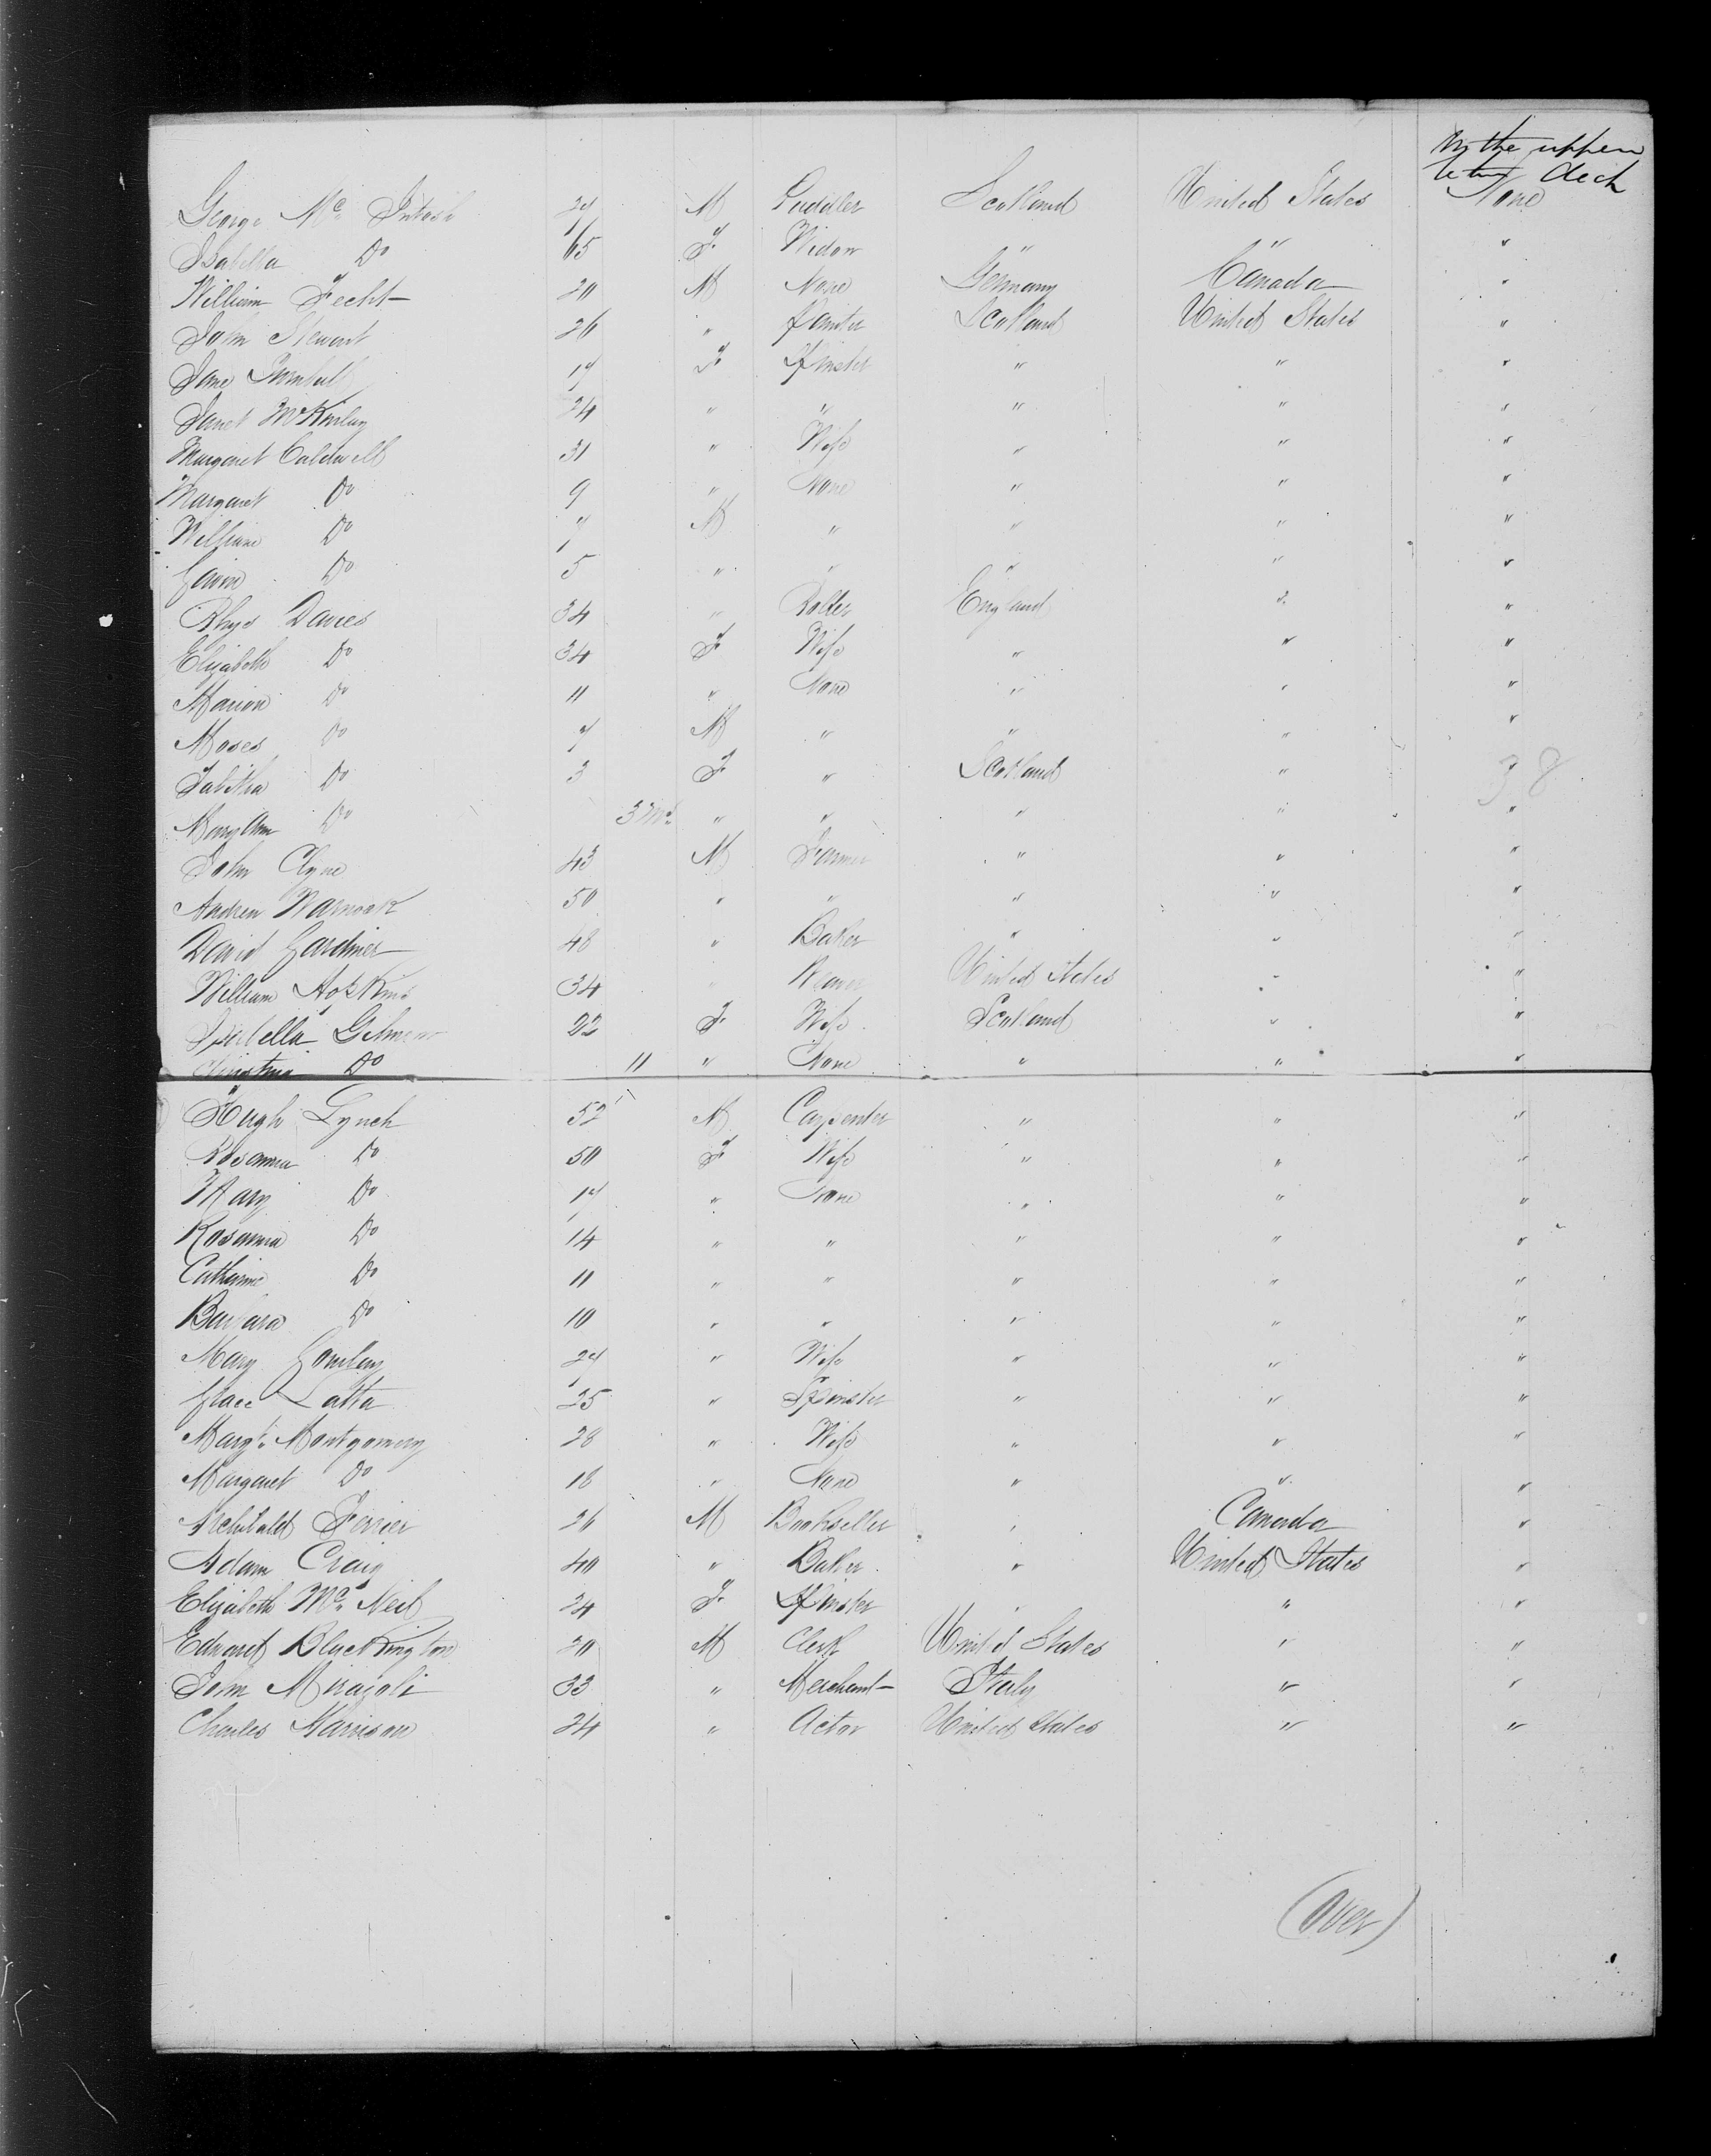 On the upper
between Deck
George Mc Intosh 27 M Puddler Scotland United States None
Isabella Do 65 F Widow " " "
William Fecht 20 M None Germany Canada "
John Stewart 26 " Painter Scotland United States "
Jane Turnbull 17 F Spinster " " "
Janet McKinlay 24 " " " " "
Margaret Caldwell 31 " Wife " " "
Margaret Do 9 " None " " "
William Do 7 M " " " "
Gavin Do 5 " " " " "
Rhys Davies 34 " Roller England " "
Elizabeth Do 34 F Wife " " "
Marion Do 11 " None " " "
Moses Do 7 M " " " "
Tabitha Do 3 F " Scotland " " 38
Mary Ann Do 3 Mos " " " " "
John Clyne 43 M Farmer " " "
Andrew Warnock 50 " " " " "
David Gardiner 48 " Baker " " "
William Hopkins 34 " Weaver United States " "
Isabella Gilmour 22 F Wife Scotland " "
Christina Do 11 " None " " "
Hugh Lynch 52 M Carpenter " " "
Rosanna Do 50 F Wife " " "
Mary Do 17 " None " " "
Rosanna Do 14 " " " " "
Catherine Do 11 " " " " "
Barbara Do 10 " " " " "
Mary Gourlay 27 " Wife " " "
Grace Latta 25 " Spinster " " "
Margt. Montgomery 28 " Wife " " "
Margaret Do 18 " None " " "
Archibald Ferrier 26 M Bookseller " Canada "
Adam Craig 40 " Baker " United States "
Elizabeth Mc Neil 24 F Spinster " " "
Edward Bluckington 20 M Clerk United States " "
John Miragoli 33 " Merchant Italy " "
Charles Harrison 24 " Actor United States " "
(Over)